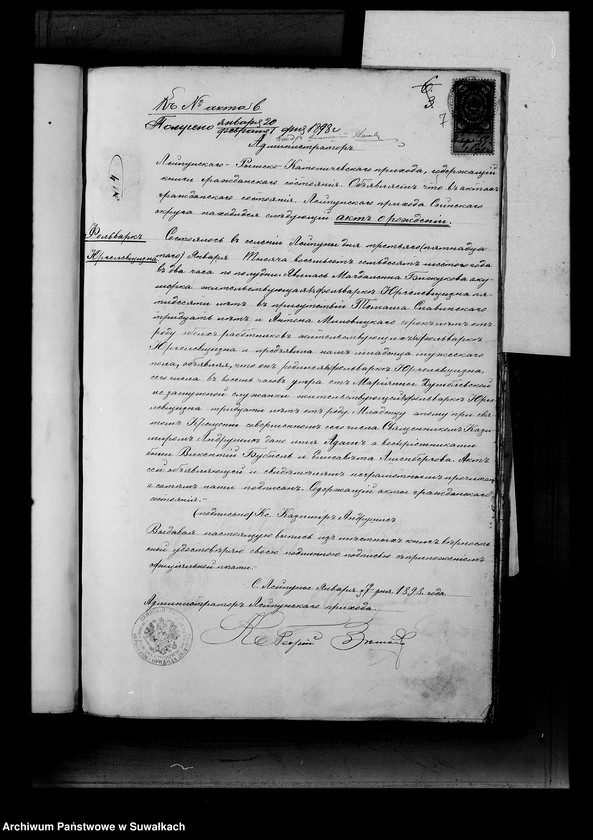 6.
3.
7
Къ № акта 6
Получено января 20
февраля 1 дня 1898 г
Администраторъ
Лейпунскаго Римско-Католическаго прихода, содержащій
книги гражданскаго состоянія. Объявляетъ что въ актахъ
гражданскаго состоянія Лейпунскаго прихода Сейнскаго
округа находится слѣдующій актъ о рожденіи.
№ 4
Фольваркъ
Юргелевщизна
Состоялось въ селеніи Лейпуны дня третьяго (пятнадца
таго) Января тысяча восемьсотъ семьдесятъ шестого года
въ два часа по полудни. Явилась Магдалена аку
шерка жительствующая въ фольваркѣ Юргелевщизна пя
тидесяти лѣтъ въ присутствіи Томаша Славинскаго
тридцать лѣтъ и Антона сорокъ лѣтъ отъ
роду обоихъ работниковъ жительствующихъ въ фольваркѣ
Юргелевщизна и предъявила намъ младенца мужескаго
пола, объявляя, что онъ родился въ фольваркѣ Юргелевщизна
сего числа въ восемь часовъ утра отъ Маріянны
незамужной служанки жительствующей въ фольваркѣ Юрге
левщизна тридцати лѣтъ отъ роду. Младенцу этому при свя
томъ Крещеніи совершенномъ сего числа Священникомъ Кази
миромъ Андрулисъ дано имя Адамъ а воспріемниками
были Викентій и Елисавета Актъ
сей объявляющей и свидѣтелямъ неграмотнымъ прочитанъ
а затѣмъ нами подписанъ. Содержащій акты гражданскаго
состоянія.
(подписано) Кс. Казиміръ Андрулисъ
Выдавая настоящую выпись изъ мѣстныхъ книгъ вѣрность
оной удостовѣряю своею подлинною подписью съ приложеніемъ
оффиціальной печати.
С. Лейпуны Января 17 дня 1898 года
Администраторъ Лейпунскаго прихода.
Archiwum Państwowe w Suwałkach